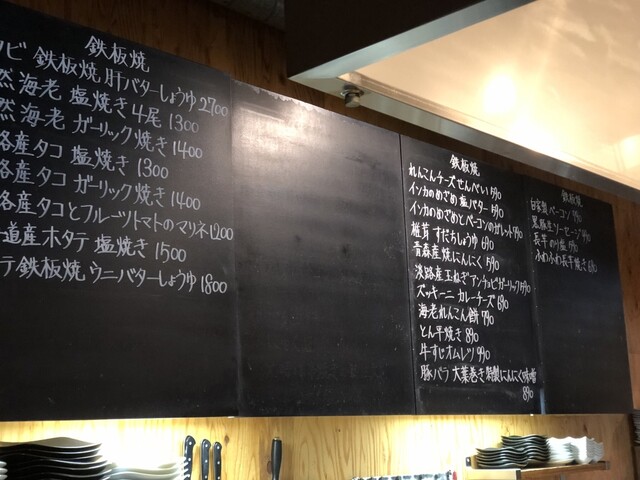 鉄板焼
ビ 鉄板焼 肝バターしょうゆ 2700
然海老 塩焼き 4尾 1300
然海老 ガーリック焼き 1400
路産タコ 塩焼き 1300
路産タコ ガーリック焼き 1400
路産タコとフルーツトマトのマリネ 1200
道産ホタテ 塩焼き 1500
テ 鉄板焼 ウニバターしょうゆ 1800
鉄板焼
れんこんチーズせんべい 590
インカのめざめ 塩バター 590
インカのめざめとベーコンのガレット 790
椎茸 すだちしょうゆ 690
青森産 焼にんにく 590
淡路産 玉ねぎアンチョビガーリック 590
ズッキーニ カレーチーズ 690
海老れんこん餅 790
とん平焼き 890
牛すじオムレツ 990
豚バラ 大葉巻き 特製にんにく味噌
890
鉄板焼
自家製ベーコン 990
黒豚生ソーセージ 990
長芋のり塩 590
ふわふわ長芋焼き 690